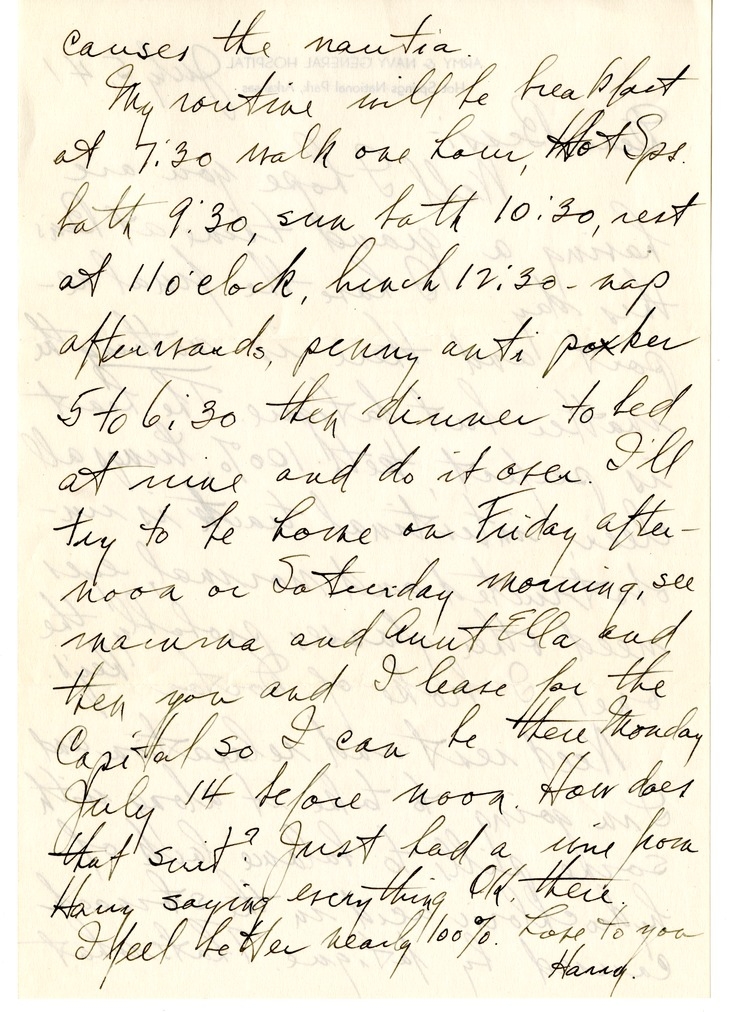 causes the nautia.
My routine will be breakfast
at 7:30 walk one hour, Hot Spgs.
bath 9:30, sun bath 10:30, rest
at 11 o'clock, lunch 12:30 - nap
afterwards, penny anti poker
5 to 6:30 then dinner to bed
at nine and do it over. I'll
try to be home on Friday after-
noon or Saturday morning, see
mamma and Aunt Ella and
then you and I leave for the
Capital so I can be there Monday
July 14 before noon. How does
that suit? Just had a wire from
Harry saying everything OK. there.
I feel better nearly 100%. Love to you
Harry.